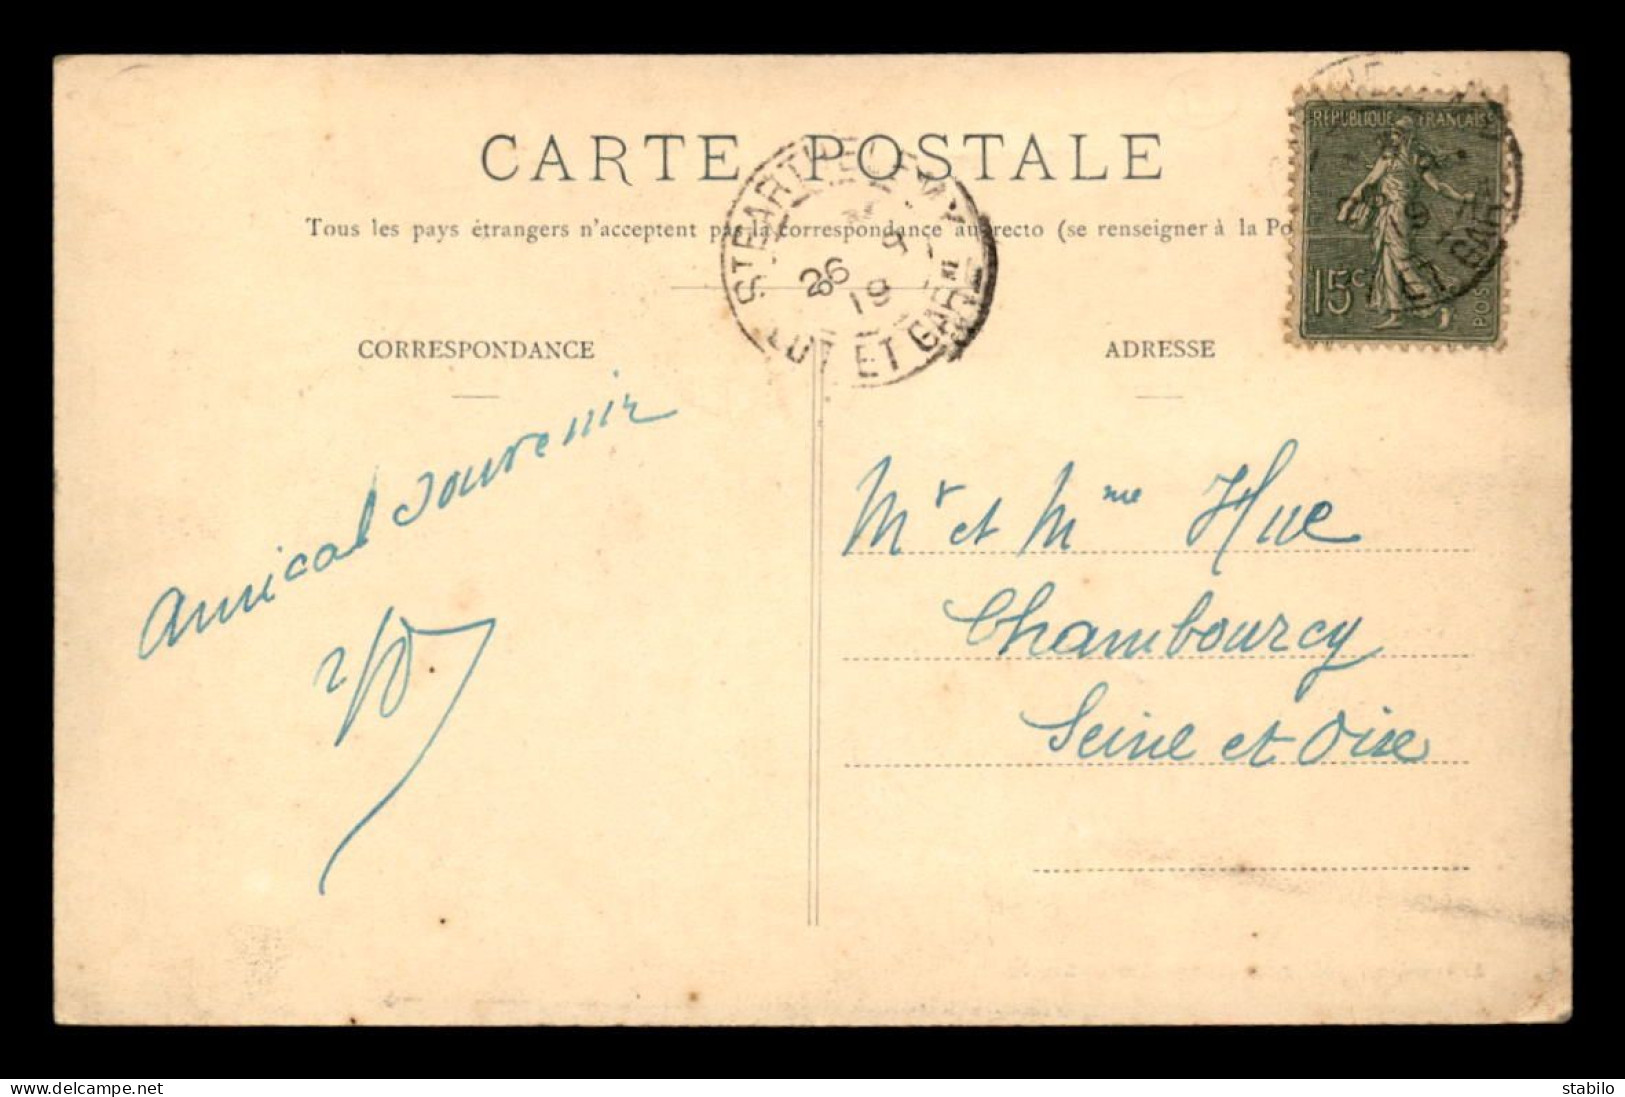 CARTE POSTALE
Tous les pays étrangers n'acceptent pas la correspondance au recto (se renseigner à la Po
RÉPUBLIQUE FRANÇAISE
15c
POS
ET GAR
26
19
LOT ET GARNE
CORRESPONDANCE
ADRESSE
Amical souvenir
Mr et Mme Hue
Chambourcy
Seine et Oise
www.delcampe.net
stabilo